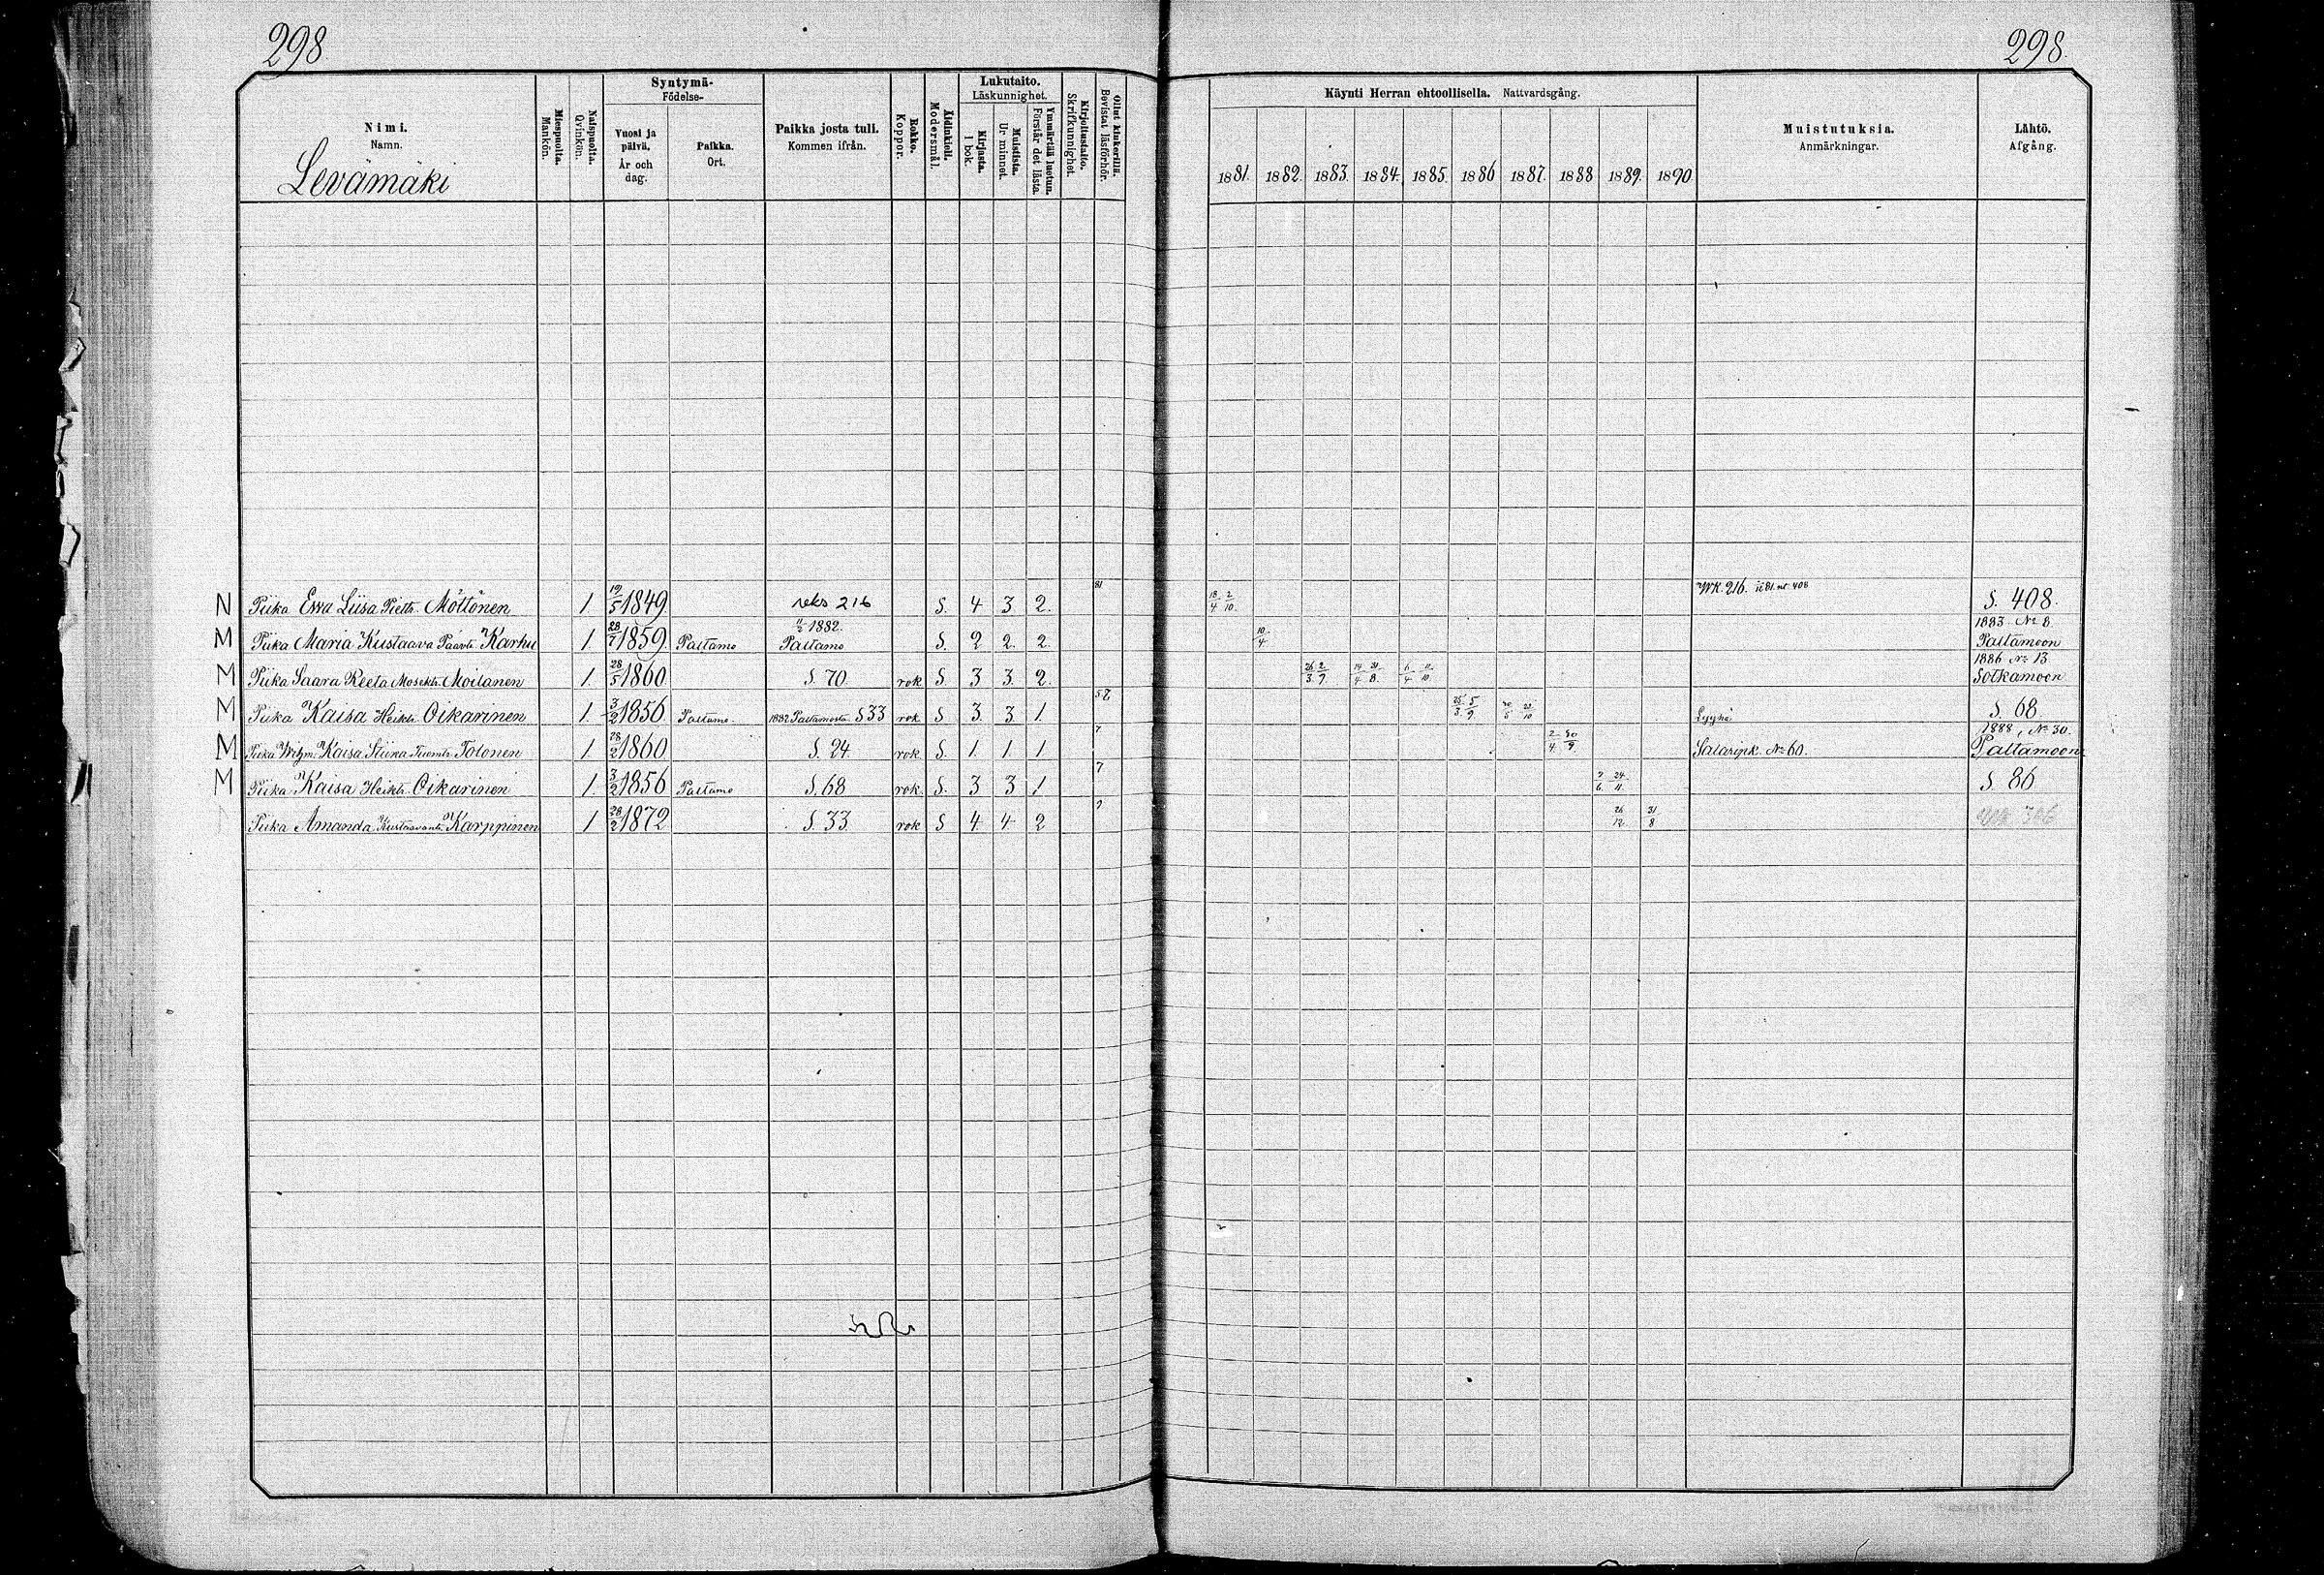 298.
298.
Nimi.
Namn.
Levämäki
Miespuolia.
Mankön.
Naispuolia.
Qvinkön.
Syntymä-
Födelse-
Vuosi ja päivä.
År och dag.
Paikka.
Ort.
Paikka josta tuli.
Kommen ifrån.
Rokko.
Koppor.
Äidinkieli.
Modersmål.
Lukutaito.
Läskunnighet.
Kirjasta.
I bok.
Muistista.
Ur minnet.
Ymmärtää luetun.
Förstår det lästa.
Kirjoitustaito.
Skrifkunnighet.
Ollut kinkerillä.
Bevistat läsförhör.
Käynti Herran ehtoollisella. Nattvardsgång.
1881. 1882. 1883. 1884. 1885. 1886 1887. 1888 1889. 1890
Muistutuksia.
Anmärkningar.
Lähtö.
Afgång.
N Piika Eva Liisa Piettr. Möttönen 1. 19/5 1849 reks 216 S. 4 3 2. 81 18/4 2/10. WK. 216. S. 408.
M Piika Maria Kustaava Paavtr. Karhu 1. 28/7 1859. Paltamo 1882. Paltamo S. 2 2. 2. 10/4 1883 No 8 Paltamoon
M Piika Saara Reeta Moilanen 1. 28/5 1860 S. 70. rok S. 3 3. 2. 1886 No 13 Sotkamoon
M Piika Kaisa Heiktr. Oikarinen 1. 3/2 1856 Paltamo. 1882 Paltamosta S 33 rok S 3. 3. 1. 25/3 5/9 S. 68
M Piika Kaisa Stiina Tuomtr. Tolonen 1. 28/2 1860 S. 24. rok S. 1 1 1 7 2/4 30/9 No 60. 1888, No 30. Paltamoon
M Piika Kaisa Heiktr. Oikarinen 1. 3/2 1856 Paltamo S. 68 rok. S. 3 3 1 7 24/11 S 86
Piika Amanda Karppinen 1 28/2 1872 S. 33. rok S 4 4 2 26/12 31/8